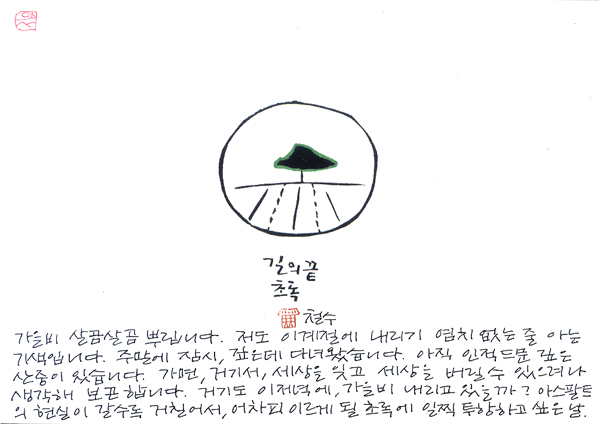 길의끝
초록
철수
가을비 뿌립니다. 저도 이계절에 내리기 염치없는 줄 아는
기색입니다. 주말에 잠시, 깊은데 다녀왔습니다. 아직 인적드문 깊은
산중이 있습니다. 가면, 거기서, 세상을 잊고 세상을 버릴수 있으려나
생각해 보곤 합니다. 거기도 가을비 내리고 있을까? 아스팔트
의 현실이 갈수록 거칠어서, 어차피 이르게 될 초록에 일찍 투항하고 싶은 날.